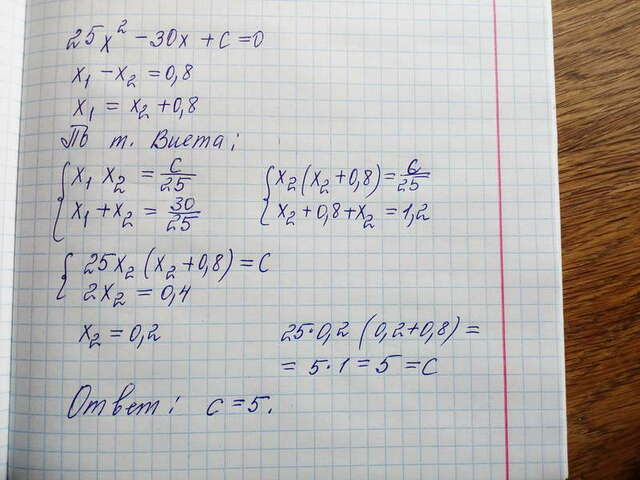 25x² - 30x + c = 0
x₁ - x₂ = 0,8
x₁ = x₂ + 0,8
По т. Виета:
{ x₁ x₂ = c/25
x₁ + x₂ = 30/25
{ x₂(x₂ + 0,8) = c/25
x₂ + 0,8 + x₂ = 1,2
{ 25x₂(x₂ + 0,8) = c
2x₂ = 0,4
x₂ = 0,2
25·0,2 (0,2 + 0,8) =
= 5·1 = 5 = c
Ответ: c = 5.